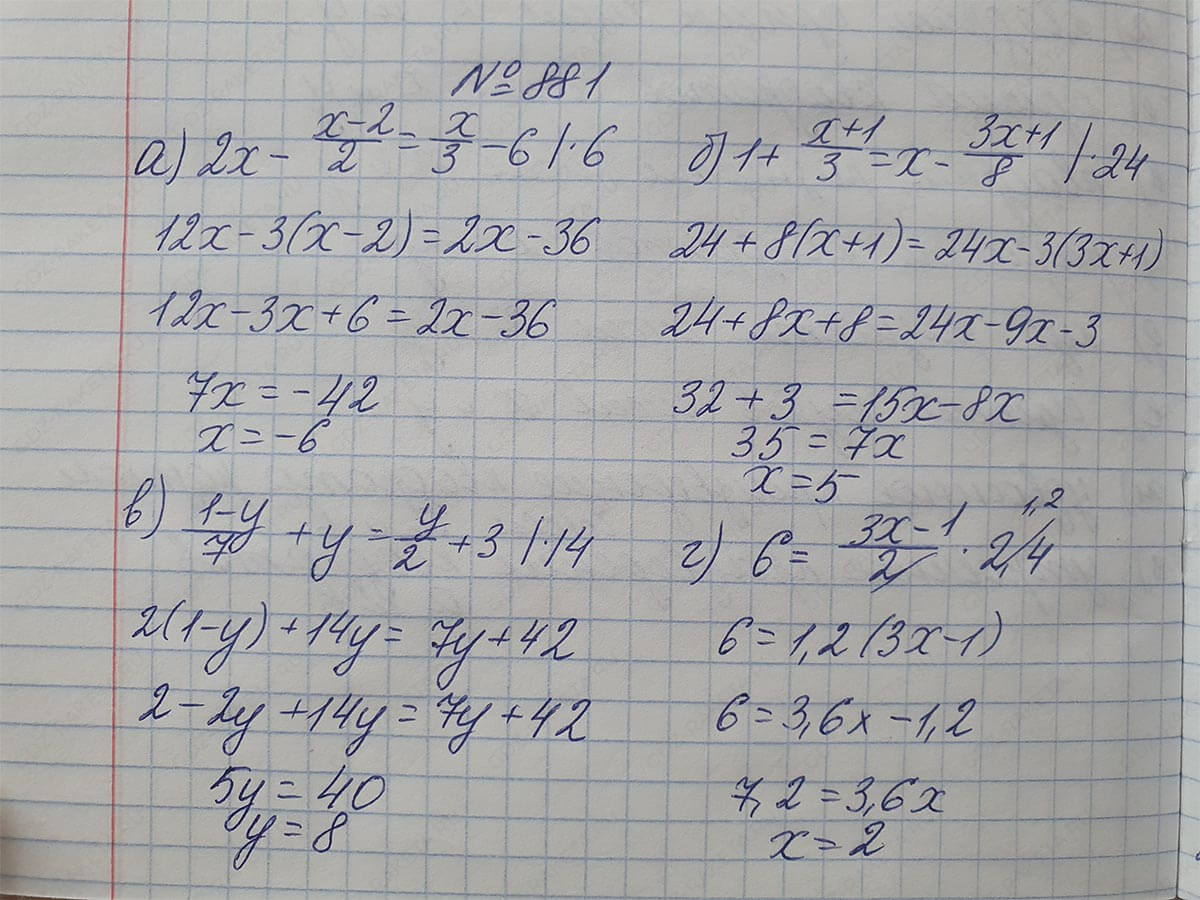 №881
а) 2x - (x-2)/2 = x/3 - 6 | · 6
12x - 3(x-2) = 2x - 36
12x - 3x + 6 = 2x - 36
7x = -42
x = -6
б) 1 + (x+1)/3 = x - (3x+1)/8 | · 24
24 + 8(x+1) = 24x - 3(3x+1)
24 + 8x + 8 = 24x - 9x - 3
32 + 3 = 15x - 8x
35 = 7x
x = 5
в) (1-y)/7 + y = y/2 + 3 | · 14
2(1-y) + 14y = 7y + 42
2 - 2y + 14y = 7y + 42
5y = 40
y = 8
1,2
г) 6 = (3x-1)/2 · 2,4
6 = 1,2(3x-1)
6 = 3,6x - 1,2
7,2 = 3,6x
x = 2